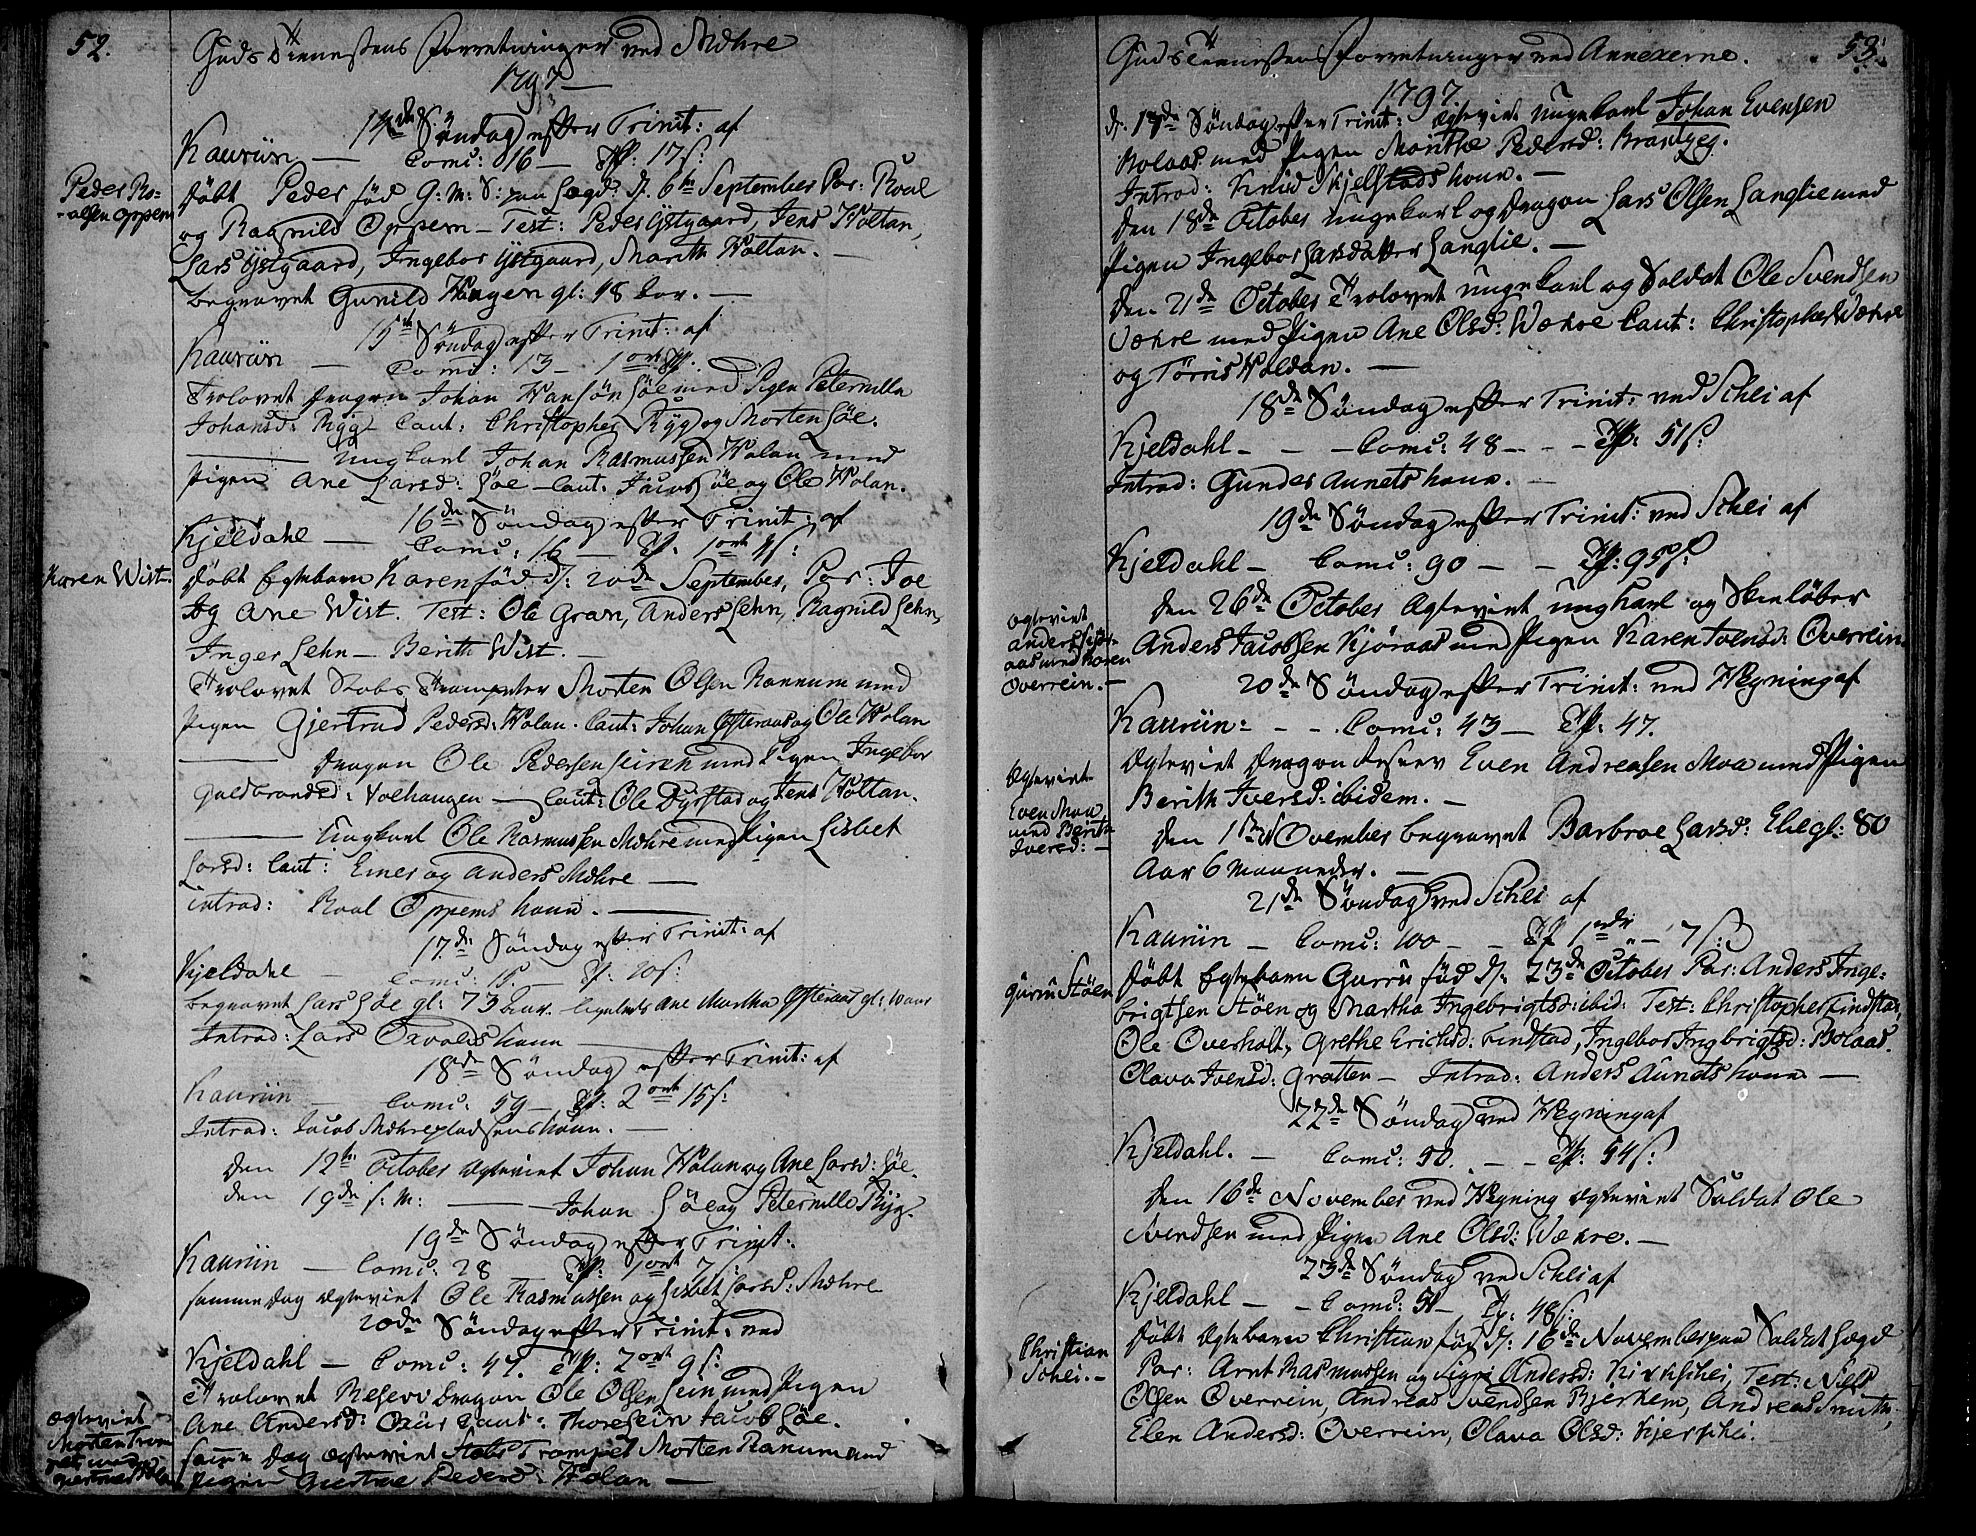 52.
Guds Tienestens Forretninger ved Mæhre
1797
14de Søndag efter Trinit: af
Kauriin — Comu: 16 — Off: 17 s:
Peder Ro-
alsen Oppem
døbt Peder fød G: M: S: paa Løgd. d. 6te September Par: Roal
og Ragnild Oppem — Test: Peder Ystgaard, Jens Holtan,
Lars Ystgaard, Ingebor Ystgaard, Marith Holtan. —
begravet Gunild Haugen gl: 48 Aar. —
15de Søndag efter Trinit: af
Kauriin — Comu: 13 — 1 ort
Trolovet Dragon Johan Hansøn Løe med Pigen Peternille
Johansd: Ryg Caut: Christopher Ryg og Morten Løe.
— Ungkarl Johan Rasmussen Holan med
Pigen Ane Larsd: Løe — Caut: Jacob Løe og Ole Holan.
16de Søndag efter Trinit: af
Kjeldahl — Comu: 16 — Off: 1 ort
Karen Wist.
døbt Egtebarn Karen fød d: 20de September, Par: Joe
og Ane Wist. Test: Ole Gran, Anders Lehn, Ragnild Lehn,
Inger Lehn — Berith Wist. —
Trolovet Stabs Trompeter Morten Olsen Rannum med
Pigen Gjertrud Pedersd: Holan. Caut: Johan Østeraas og Ole Holan
— Dragon Ole Pedersen med Pigen Ingebor
Guldbrandsd: Volhaugen — Caut: Ole Dyrstad og Jens Holtan.
— Ungkarl Ole Rasmussen Mæhre med Pigen Lisbet
Larsd: Caut: Einer og Anders Mæhre —
introd: Roal Oppems kone. —
17de Søndag efter Trinit: af
Kjeldahl — Comu: — Off: 20 s:
begravet Lars Løe gl: 73 Aar. ligeledes Ane Martha Østeraas gl:
Introd: Lars kone —
18de Søndag efter Trinit: af
Kauriin — Comu: 59 — Off: 2 ort 15 s:
Introd: Jacob Mæhrepladsens kone. —
den 12te October Egteviet Johan Holan og Ane Larsd: Løe.
den 19de s: M: — Johan Løe og Peternille Ryg.
19de Søndag efter Trinit:
Kauriin — Comu: 28 Off: 1 ort 7 s:
samme Dag Egteviet Ole Rasmussen og Lisbet Larsd: Mæhre
20de Søndag efter Trinit: ved
Kjeldahl — Comu: 47. Off: 2 ort 9 s:
Trolovet Reserv Dragon Ole Olsen med Pigen
Ane Andersd: Caut: Jacob Løe.
Egteviet
Morten Trom
pet med
samme Dag Egteviet Stabs Trompet Morten Ranum med
Pigen Giertrue Pedersd: Holan —
53.
Guds Tienestens Forretninger ved Annexerne.
1797.
d. 17de Søndag efter Trinit: Egteviet Ungekarl Johan Evensen
Bolaas med Pigen Marithe Pedersd: Brandzeg.
Introd: Knud Skjelstads kone. —
den 18de October Ungekarl og Dragon Lars Olsen Langlie med
Pigen Ingebor Larsdatter Langlie. —
den 21de October Trolovet Ungekarl og Soldat Ole Svendsen
Wæhre med Pigen Ane Olsd: Wæhre Caut: Christopher Wæhre
og Tørris Holdan. —
18de Søndag efter Trinit: ved Schei af
Kjeldahl — — — Comu: 48 — — Off: 51 s:
Introd: Gunder Aunets kone. —
19de Søndag efter Trinit: ved Schei af
Kjeldahl — Comu: 90 — — Off: 95 s:
Egteviet
Anders Kjør-
aas med Karen
Overrein. —
den 26de October Egteviet Ungkarl og Skieløber
Anders Jacobsen Kjøraas med Pigen Karen Iversd: Overrein
20de Søndag efter Trinit: ved Hegning af
Kauriin: — — Comu: 43 — Off: 47.
Egteviet
Even Moe
med Berith
Iversd: —
Egteviet Dragon Reserv Even Andreasen Moe med Pigen
Berith Iversd: ibidem. —
den 1te November begravet Barbroe Larsd: gl: 80
Aar 6 Maaneder. —
21de Søndag ved Schei af
Kauriin — Comu: 100 — — Off 1 ort — 7 s:
Gurru Støen
døbt Egtebarn Gurru fød d: 23de October Par: Anders Inge-
brigtsen Støen og Martha Ingebrigtsd: ibid: Test: Christopher Findstad,
Ole Overholt, Grethe Erichsd: Findstad, Ingebor Ingbrigtsd: Bolaas.
Olava Iversd: Grøtten — Introd: Anders Aunets kone —
22de Søndag ved Hegning af
Kjeldahl. — Comu: 50. — — Off: 54 s:
den 16de November ved Hegning Egteviet Soldat Ole
Svendsen med Pigen Ane Olsd: Wæhre. —
23de Søndag ved Schei af
Kjeldahl — — Comu: 51 — Off: 48 s:
Christian
Schei. —
døbt Egtebarn Christian fød d: 16de November paa Soldat Lægd
Par: Arnt Rasmussen og Sigri Andersd: Test: Niels
Olsen Overrein, Andreas Svendsen Bjerkem, Andreas
Elen Andersd: Overrein, Olava Olsd: